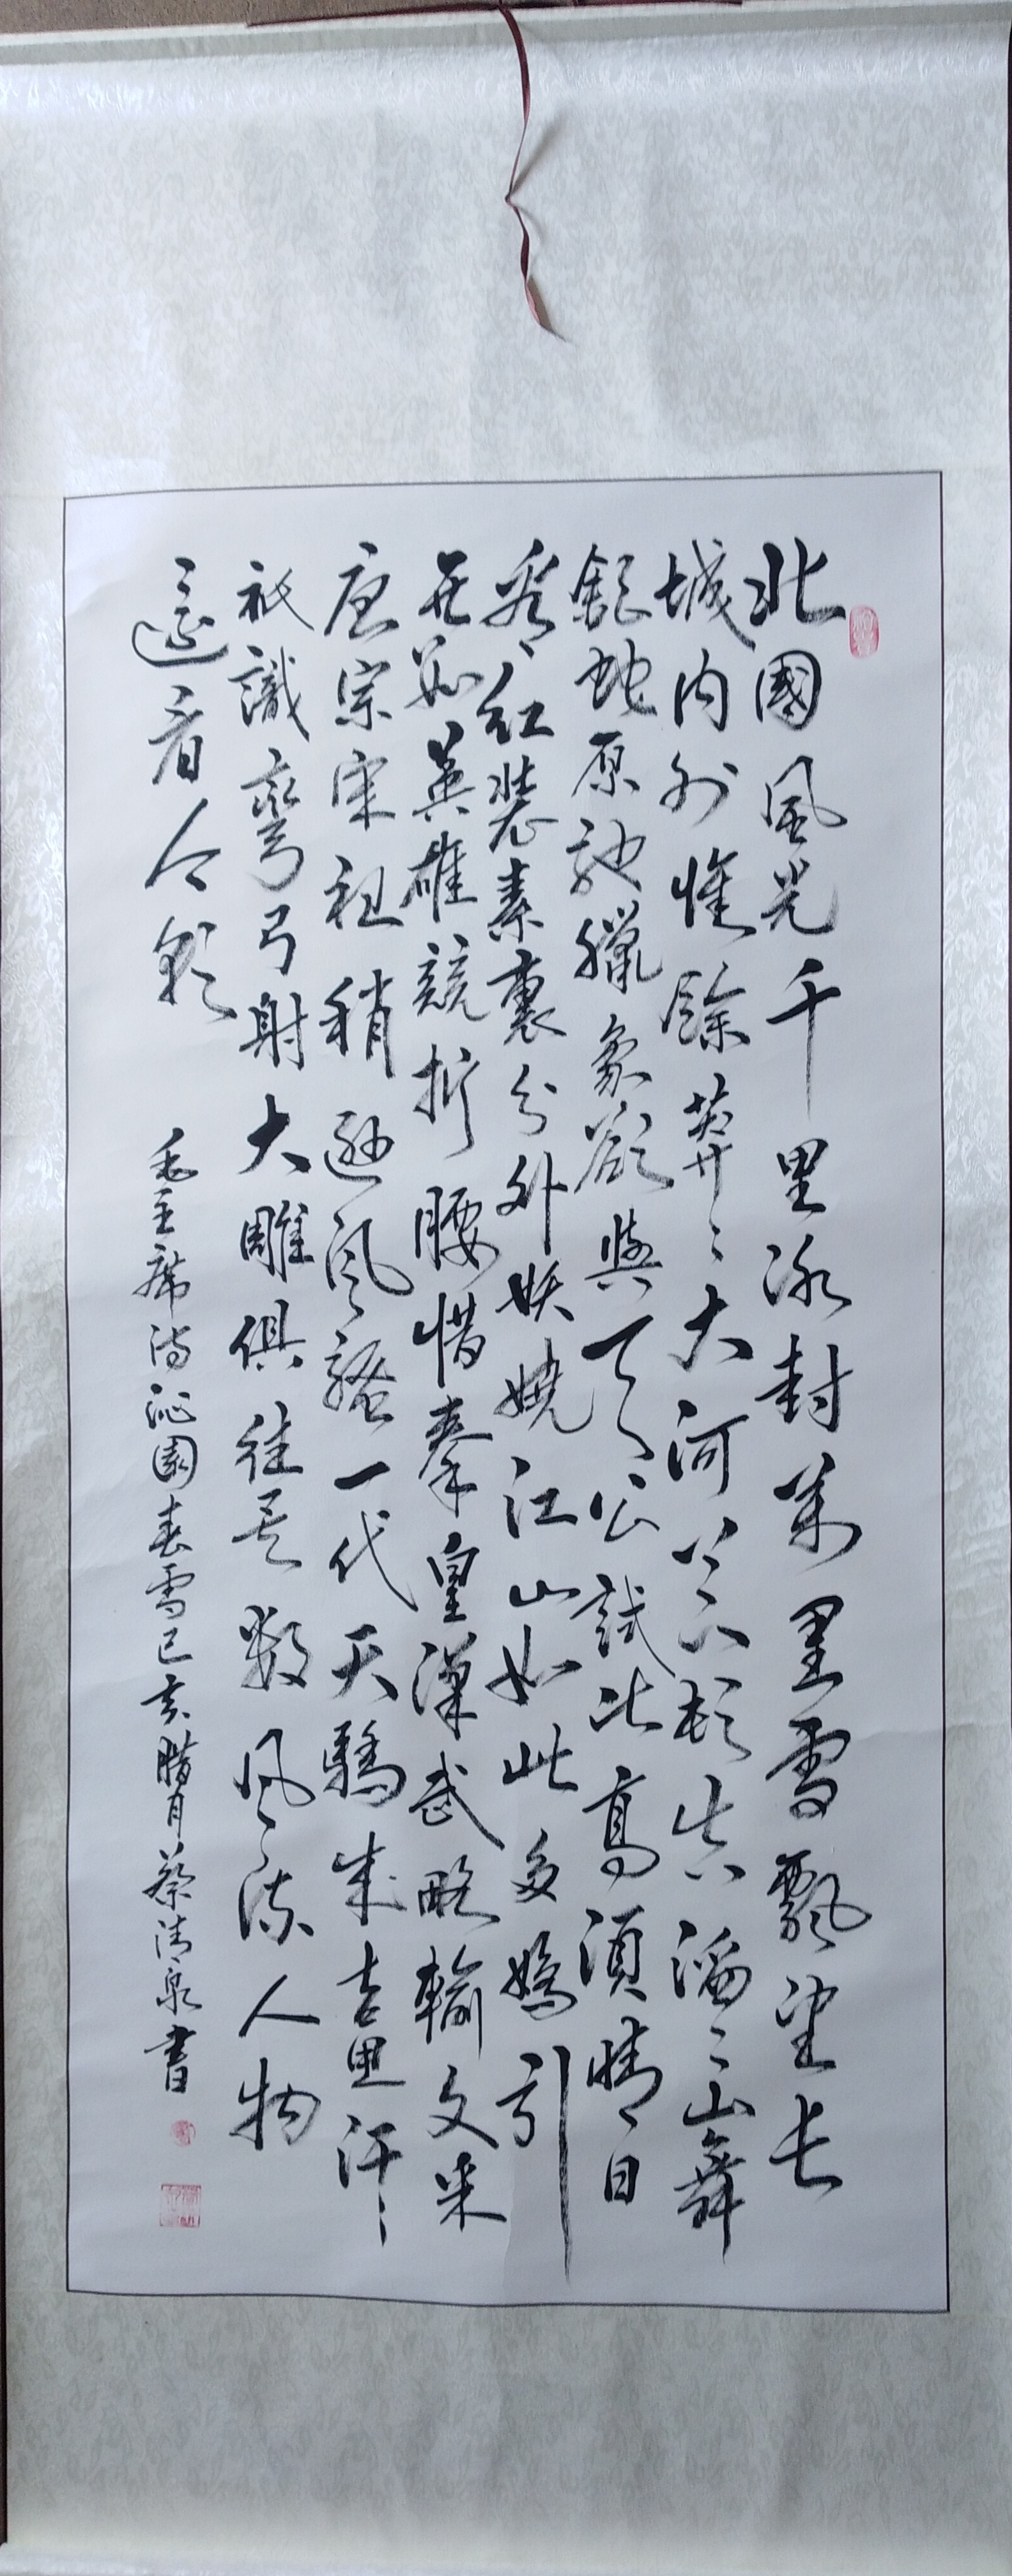 北國風光千里冰封萬里雪飄望長
城内外惟餘莽々大河上下頓失滔々山舞
銀蛇原馳臘象欲與天公試比高須晴日
看紅裝素裹分外妖嬈江山如此多嬌引
無數英雄競折腰惜秦皇漢武略輸文采
唐宗宋祖稍遜風騷一代天驕成吉思汗
祇識彎弓射大雕俱往矣數風流人物
還看今朝
毛主席詩沁園春雪己亥腊月蔡清泉書